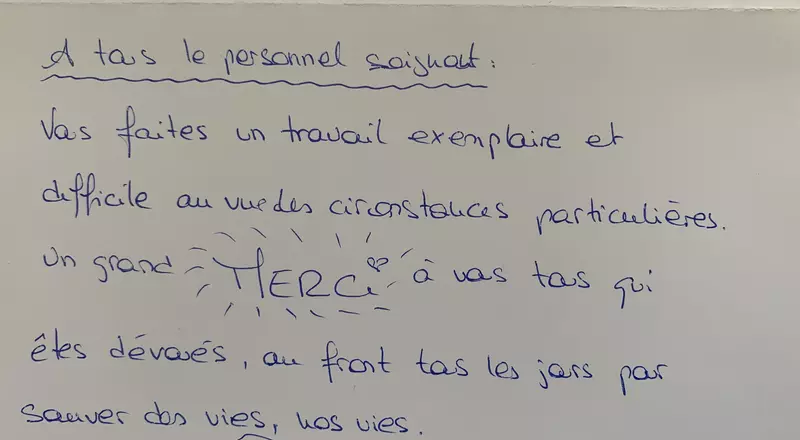 A tous le personnel soignant :
Vous faites un travail exemplaire et
difficile au vue des circonstances particulières.
Un grand MERCI à vous tous qui
êtes dévoués, au front tous les jours pour
sauver des vies, nos vies.